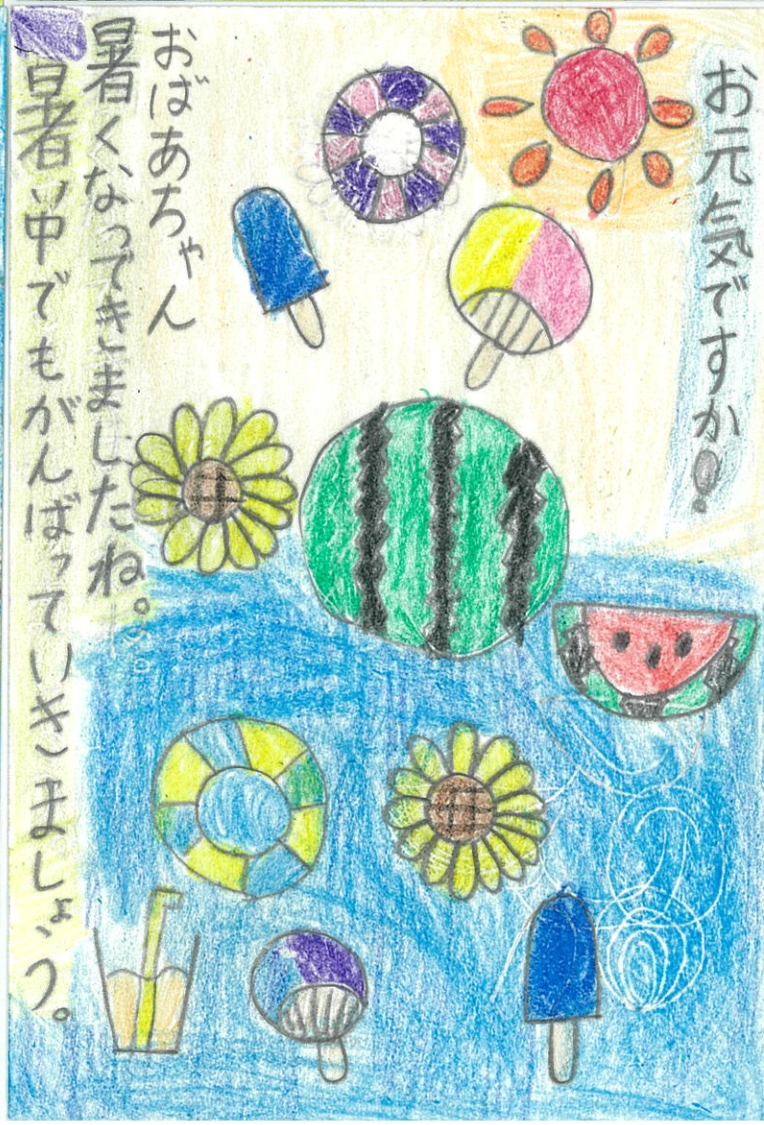 お元気ですか!
おばあちゃん
暑くなってきましたね。
暑い中でもがんばっていきましょう。